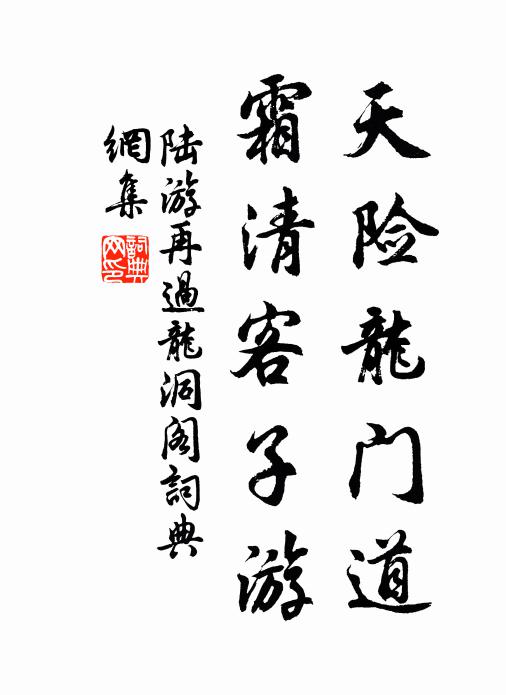 天险龍门道
霜清客子游
陆游再過龍洞阁詞典
網集
詞典
网印